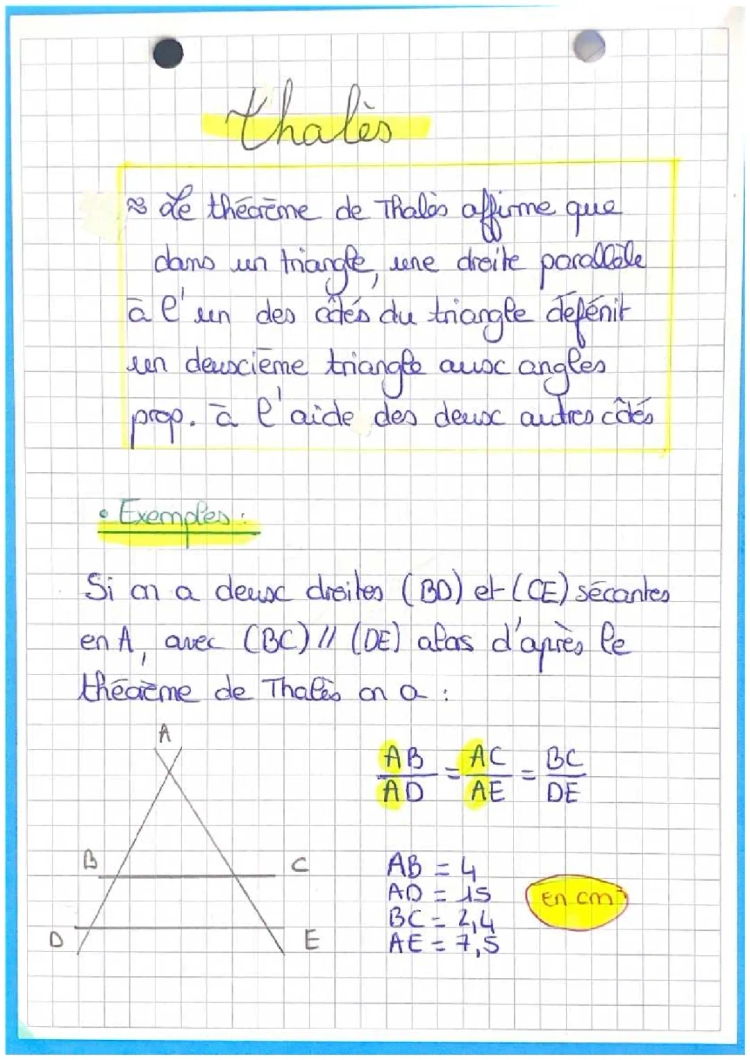 Thalès
≈ Le théorème de Thalès affirme que
dans un triangle, une droite parallèle
à l'un des côtés du triangle défénit
un deuxcième triangle aux angles
prop. à l'aide des deux autres côtés
• Exemples :
Si on a deux droites (BD) et (CE) sécantes
en A, avec (BC) // (DE) alors d'après le
théorème de Thalès on a :
A
B
C
D
E
AB/AD = AC/AE = BC/DE
AB = 4
AD = 15
BC = 2,4
AE = 7,5
En cm